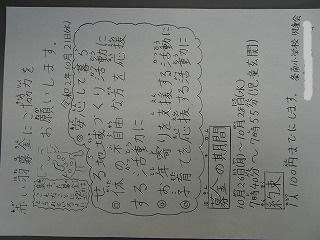 赤い羽募金にご協力を
お願いします。
令和2年10月21日(水)
◎安心して暮ら
せる地域づくり活動に
◎体の不自由な方を応援
する活動に
◎お年寄りを支援する活動に
◎子育てを応援する活動に
募金の期間
10月26日(月)〜10月28日(水)
7時45分〜7時55分(児童玄関)
約束
1人100円までにします。
南小学校 児童会